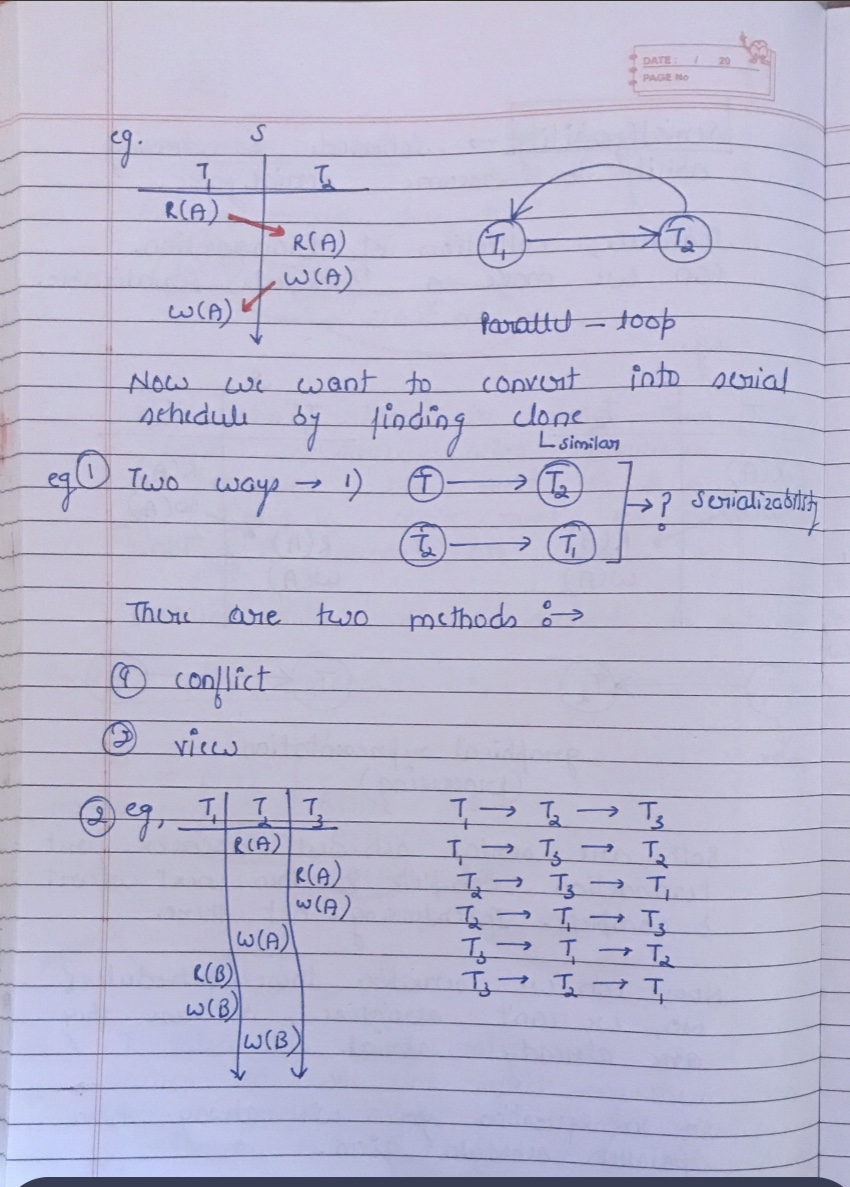 DATE: / 20
PAGE No
eg. S
T1 T2
R(A)
R(A)
W(A)
W(A)
T1 T2
Parallel - loop
Now we want to convert into serial
schedule by finding clone
similar
eg ① Two ways → 1) T → T2
T2 → T1
→ ? serializability
There are two methods :→
① conflict
② view
② eg, T1 T2 T3
R(A)
R(A)
W(A)
W(A)
R(B)
W(B)
W(B)
T1 → T2 → T3
T1 → T3 → T2
T2 → T3 → T1
T2 → T1 → T3
T3 → T1 → T2
T3 → T2 → T1